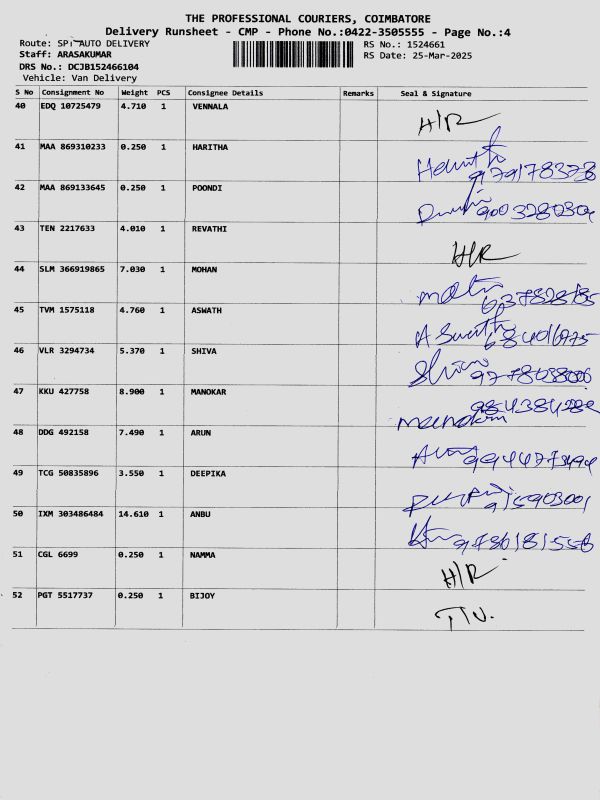 THE PROFESSIONAL COURIERS, COIMBATORE
Delivery Runsheet - CMP - Phone No.:0422-3505555 - Page No.:4
Route: SPi AUTO DELIVERY
RS No.: 1524661
Staff: ARASAKUMAR
RS Date: 25-Mar-2025
DRS No.: DCJB152466104
Vehicle: Van Delivery
S No Consignment No Weight PCS Consignee Details Remarks Seal & Signature
40 EDQ 10725479 4.710 1 VENNALA H/R
41 MAA 869310233 0.250 1 HARITHA
42 MAA 869133645 0.250 1 POONDI
43 TEN 2217633 4.010 1 REVATHI H/R
44 SLM 366919865 7.030 1 MOHAN
45 TVM 1575118 4.760 1 ASWATH
46 VLR 3294734 5.370 1 SHIVA
47 KKU 427758 8.900 1 MANOKAR
48 DDG 492158 7.490 1 ARUN
49 TCG 50835896 3.550 1 DEEPIKA
50 IXM 303486484 14.610 1 ANBU
51 CGL 6699 0.250 1 NAMMA H/R
52 PGT 5517737 0.250 1 BIJOY